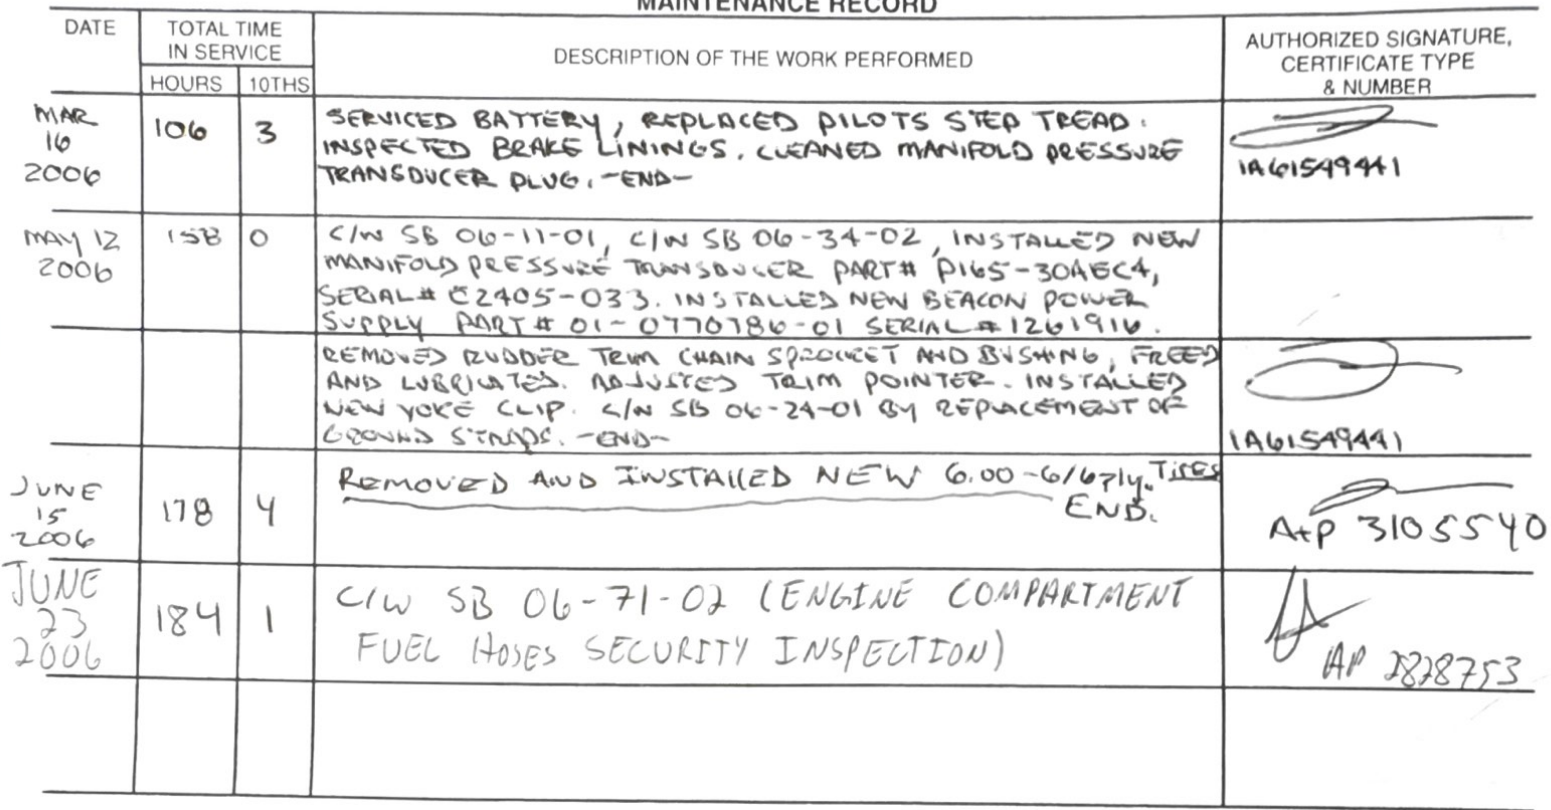 MAINTENANCE RECORD
DATE
TOTAL TIME
IN SERVICE
HOURS 10THS
DESCRIPTION OF THE WORK PERFORMED
AUTHORIZED SIGNATURE,
CERTIFICATE TYPE
& NUMBER
MAR
16
2006
106 3
SERVICED BATTERY, REPLACED PILOTS STEP TREAD.
INSPECTED BRAKE LININGS. CLEANED MANIFOLD PRESSURE
TRANSDUCER PLUG. -END-
IA61549441
MAY 12
2006
158 0
C/W SB 06-11-01, C/W SB 06-34-02, INSTALLED NEW
MANIFOLD PRESSURE TRANSDUCER PART# P165-30AEC4,
SERIAL# C2405-033. INSTALLED NEW BEACON POWER
SUPPLY PART# 01-0770786-01 SERIAL#1261916.
REMOVED RUDDER TRIM CHAIN SPROCKET AND BUSHING, FREED
AND LUBRICATED. ADJUSTED TRIM POINTER. INSTALLED
NEW YOKE CLIP. C/W SB 06-24-01 BY REPLACEMENT OF
GROUND STRAPS. -END-
IA61549441
JUNE
15
2006
178 4
REMOVED AND INSTALLED NEW 6.00-6/6ply. Tires
END.
A+P 3105540
JUNE
23
2006
184 1
C/W SB 06-71-02 (ENGINE COMPARTMENT
FUEL HOSES SECURITY INSPECTION)
AP 2828753